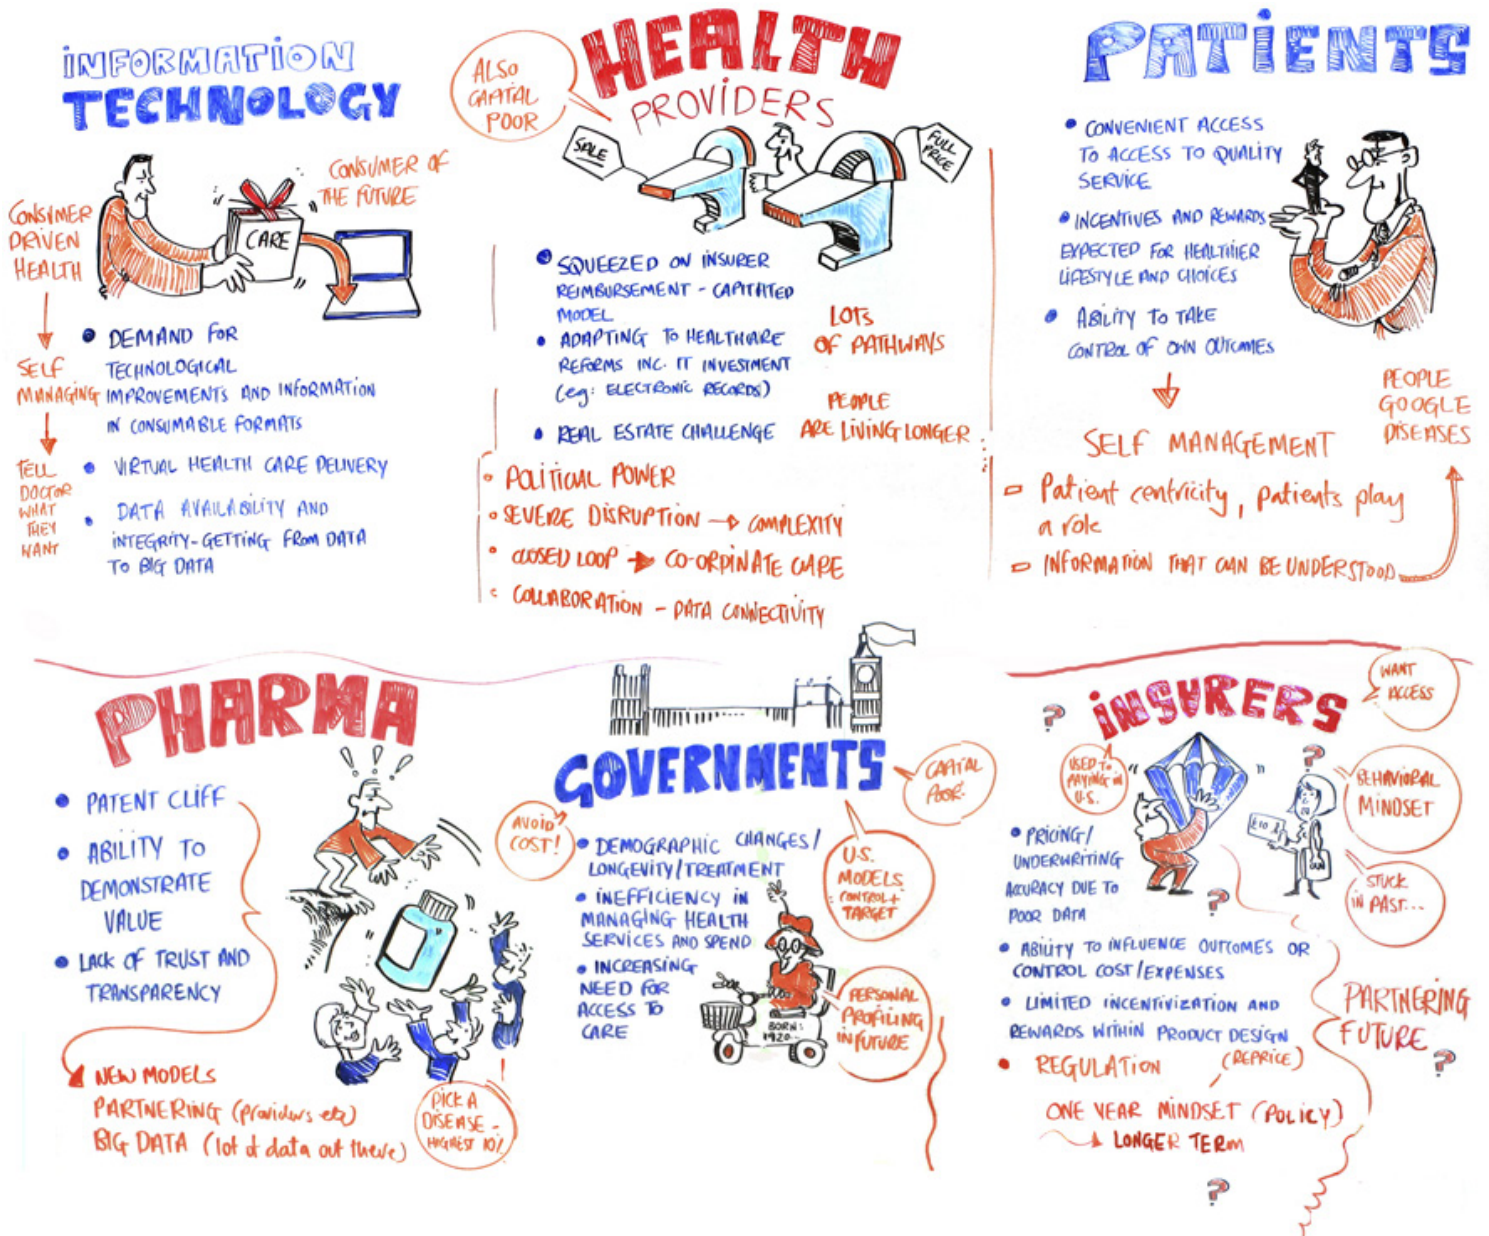 INFORMATION
TECHNOLOGY
CONSUMER OF
THE FUTURE
CARE
CONSUMER
DRIVEN
HEALTH
SELF
MANAGING
TELL
DOCTOR
WHAT
THEY
WANT
DEMAND FOR
TECHNOLOGICAL
IMPROVEMENTS AND INFORMATION
IN CONSUMABLE FORMATS
VIRTUAL HEALTH CARE DELIVERY
DATA AVAILABILITY AND
INTEGRITY-GETTING FROM DATA
TO BIG DATA
HEALTH
PROVIDERS
ALSO
CAPITAL
POOR
SALE
FULL
PRICE
SQUEEZED ON INSURER
REIMBURSEMENT - CAPITATED
MODEL
ADAPTING TO HEALTHCARE
REFORMS INC. IT INVESTMENT
(eg: ELECTRONIC RECORDS)
REAL ESTATE CHALLENGE
LOTS
OF PATHWAYS
PEOPLE
ARE LIVING LONGER
POLITICAL POWER
SEVERE DISRUPTION → COMPLEXITY
CLOSED LOOP → CO-ORDINATE CARE
COLLABORATION - DATA CONNECTIVITY
PATIENTS
CONVENIENT ACCESS
TO ACCESS TO QUALITY
SERVICE
INCENTIVES AND REWARDS
EXPECTED FOR HEALTHIER
LIFESTYLE AND CHOICES
ABILITY TO TAKE
CONTROL OF OWN OUTCOMES
SELF MANAGEMENT
Patient centricity, patients play
a role
INFORMATION THAT CAN BE UNDERSTOOD
PEOPLE
GOOGLE
DISEASES
PHARMA
! ! ?
PATENT CLIFF
ABILITY TO
DEMONSTRATE
VALUE
LACK OF TRUST AND
TRANSPARENCY
NEW MODELS
PARTNERING (providers etc)
BIG DATA (lot of data out there)
PICK A
DISEASE -
HIGHEST 10%
GOVERNMENTS
CAPITAL
POOR!
AVOID
COST!
DEMOGRAPHIC CHANGES/
LONGEVITY/TREATMENT
INEFFICIENCY IN
MANAGING HEALTH
SERVICES AND SPEND
INCREASING
NEED FOR
ACCESS TO
CARE
U.S.
MODELS
CONTROL +
TARGET
PERSONAL
PROFILING
IN FUTURE
BORN:
1920
INSURERS
WANT
ACCESS
USED TO
PAYING IN
U.S.
BEHAVIORAL
MINDSET
STUCK
IN PAST...
PRICING/
UNDERWRITING
ACCURACY DUE TO
POOR DATA
ABILITY TO INFLUENCE OUTCOMES OR
CONTROL COST/EXPENSES
LIMITED INCENTIVIZATION AND
REWARDS WITHIN PRODUCT DESIGN
REGULATION
(REPRICE)
ONE YEAR MINDSET (POLICY)
LONGER TERM
PARTNERING
FUTURE
? ? ? ? ?